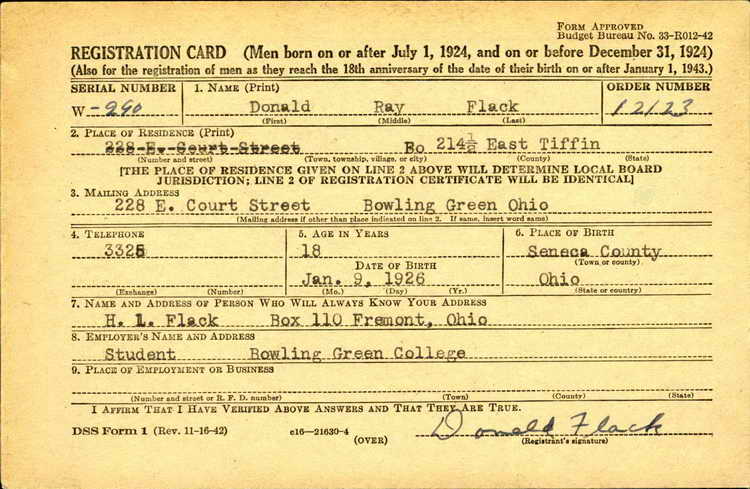 FORM APPROVED
Budget Bureau No. 33-R012-42
REGISTRATION CARD (Men born on or after July 1, 1924, and on or before December 31, 1924)
(Also for the registration of men as they reach the 18th anniversary of the date of their birth on or after January 1, 1943.)
SERIAL NUMBER 1. NAME (Print) ORDER NUMBER
W-290 Donald Ray Flack 12123
(First) (Middle) (Last)
2. PLACE OF RESIDENCE (Print)
228 E. Court Street 214½ East Tiffin
(Number and street) (Town, township, village, or city) (County) (State)
[THE PLACE OF RESIDENCE GIVEN ON LINE 2 ABOVE WILL DETERMINE LOCAL BOARD
JURISDICTION; LINE 2 OF REGISTRATION CERTIFICATE WILL BE IDENTICAL]
3. MAILING ADDRESS
228 E. Court Street Bowling Green Ohio
(Mailing address if other than place indicated on line 2. If same, insert word same)
4. TELEPHONE 5. AGE IN YEARS 6. PLACE OF BIRTH
3325 18 Seneca County
DATE OF BIRTH (Town or county)
Jan. 9, 1926 Ohio
(Exchange) (Number) (Mo.) (Day) (Yr.) (State or country)
7. NAME AND ADDRESS OF PERSON WHO WILL ALWAYS KNOW YOUR ADDRESS
H. L. Flack Box 110 Fremont, Ohio
8. EMPLOYER'S NAME AND ADDRESS
Student Bowling Green College
9. PLACE OF EMPLOYMENT OR BUSINESS
(Number and street or R. F. D. number) (Town) (County) (State)
I AFFIRM THAT I HAVE VERIFIED ABOVE ANSWERS AND THAT THEY ARE TRUE.
DSS Form 1 (Rev. 11-16-42) c16—21630-4 Donald Flack
(OVER) (Registrant's signature)